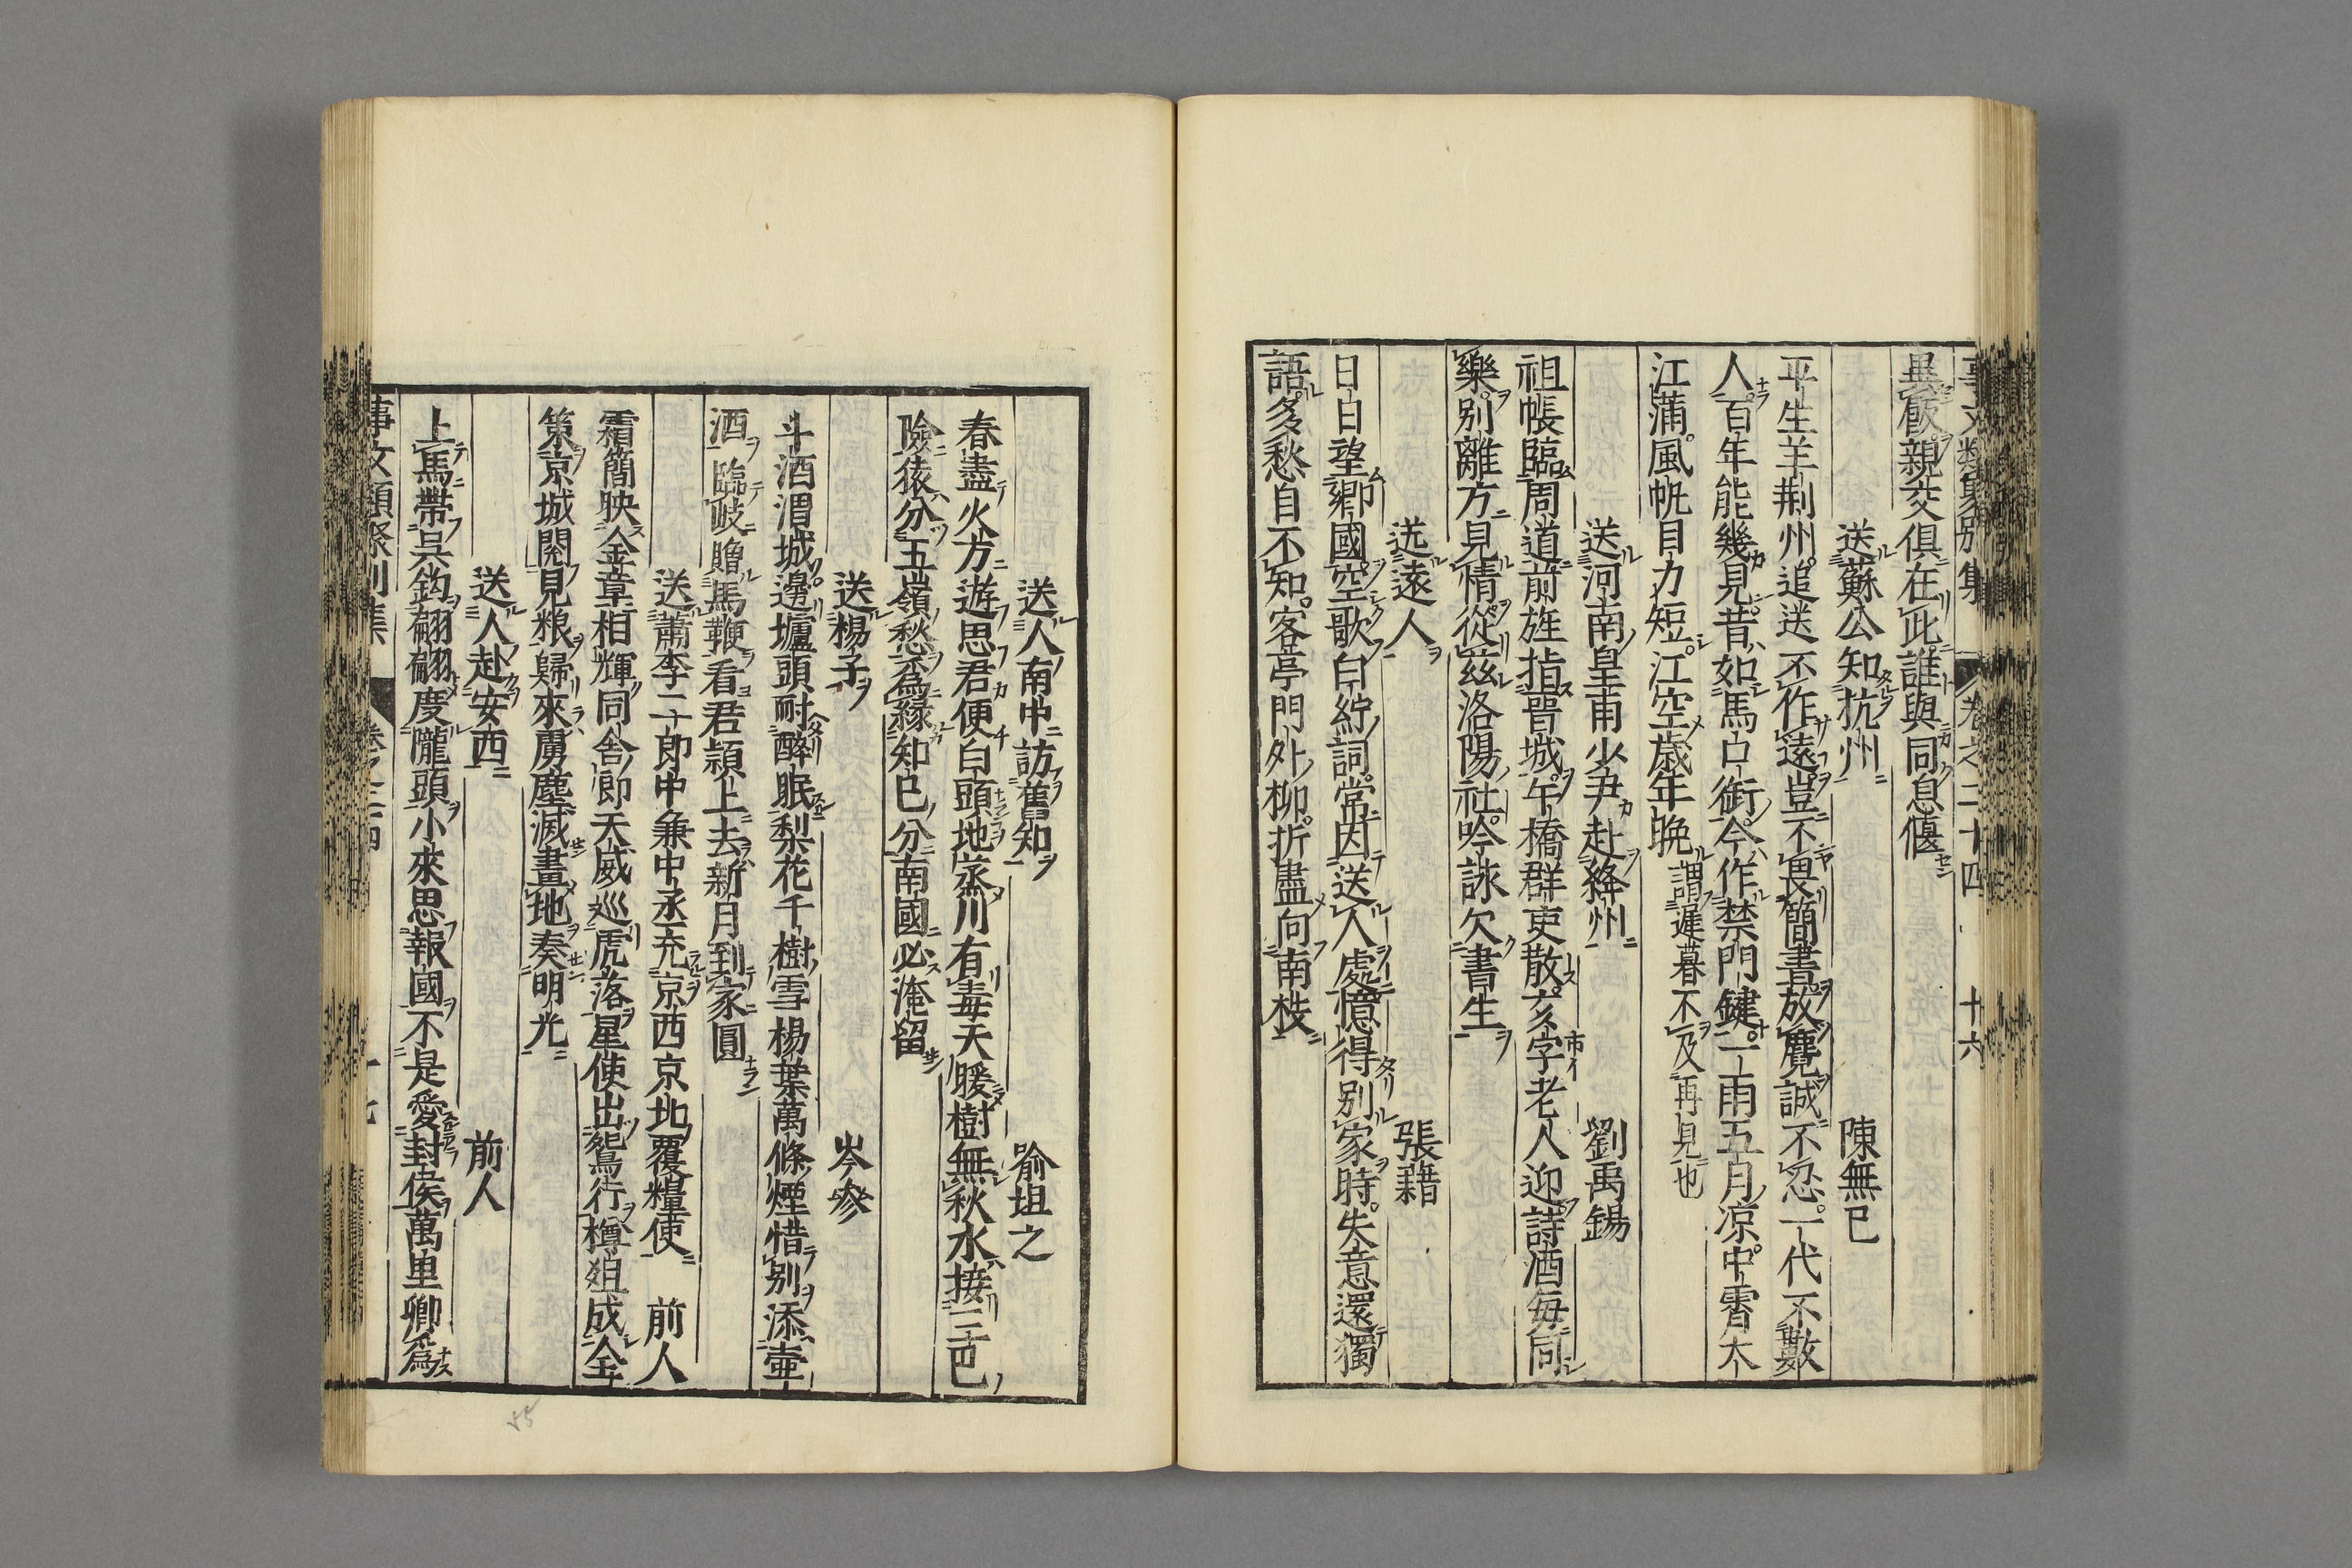 事文類聚別集 卷之二十四 十六
異飮親交俱在此誰與同息偃
送蘇公知杭州 陳無已
平生羊荆州追送不作遠豈不畏簡書放麑誠不忍一代不數
人百年能幾見昔如馬口銜今作禁門鍵一雨五月凉中霄大
江蒲風帆目力短江空歲年晚謂遲暮不及再見也
送河南皇甫少尹赴絳州 劉禹錫
祖帳臨周道前旌指晉城午橋群吏散亥字老人迎詩酒每同
樂別離方見情從茲洛陽社吟詠欠書生
送遠人 張籍
日日望鄉國空歌白紵詞常因送人處憶得別家時失意還獨
語多愁自不知客亭門外柳折盡向南枝
送人南中訪舊知 喻坦之
春盡火方遊思君便白頭地蒸川有毒天暖樹無秋水接三巴
險猿分五嶺愁爲緣知已分南國必淹留
送楊子 岑參
斗酒渭城邊壚頭耐醉眠梨花千樹雪楊葉萬條煙惜別添壷
酒臨岐贈馬鞭看君頴上去新月到家圓
送蕭李二十郎中兼中丞充京西京地覆糧使 前人
霜簡映金章相輝同舍郎天威巡虎落星使出鴛行樽俎成全
策京城閱見粮歸來虜塵滅畫地奏明光
送人赴安西 前人
上馬帶吳鈎翩翩度隴頭小來思報國不是愛封侯萬里鄉爲
事文類聚別集 卷之二十四 十七
55